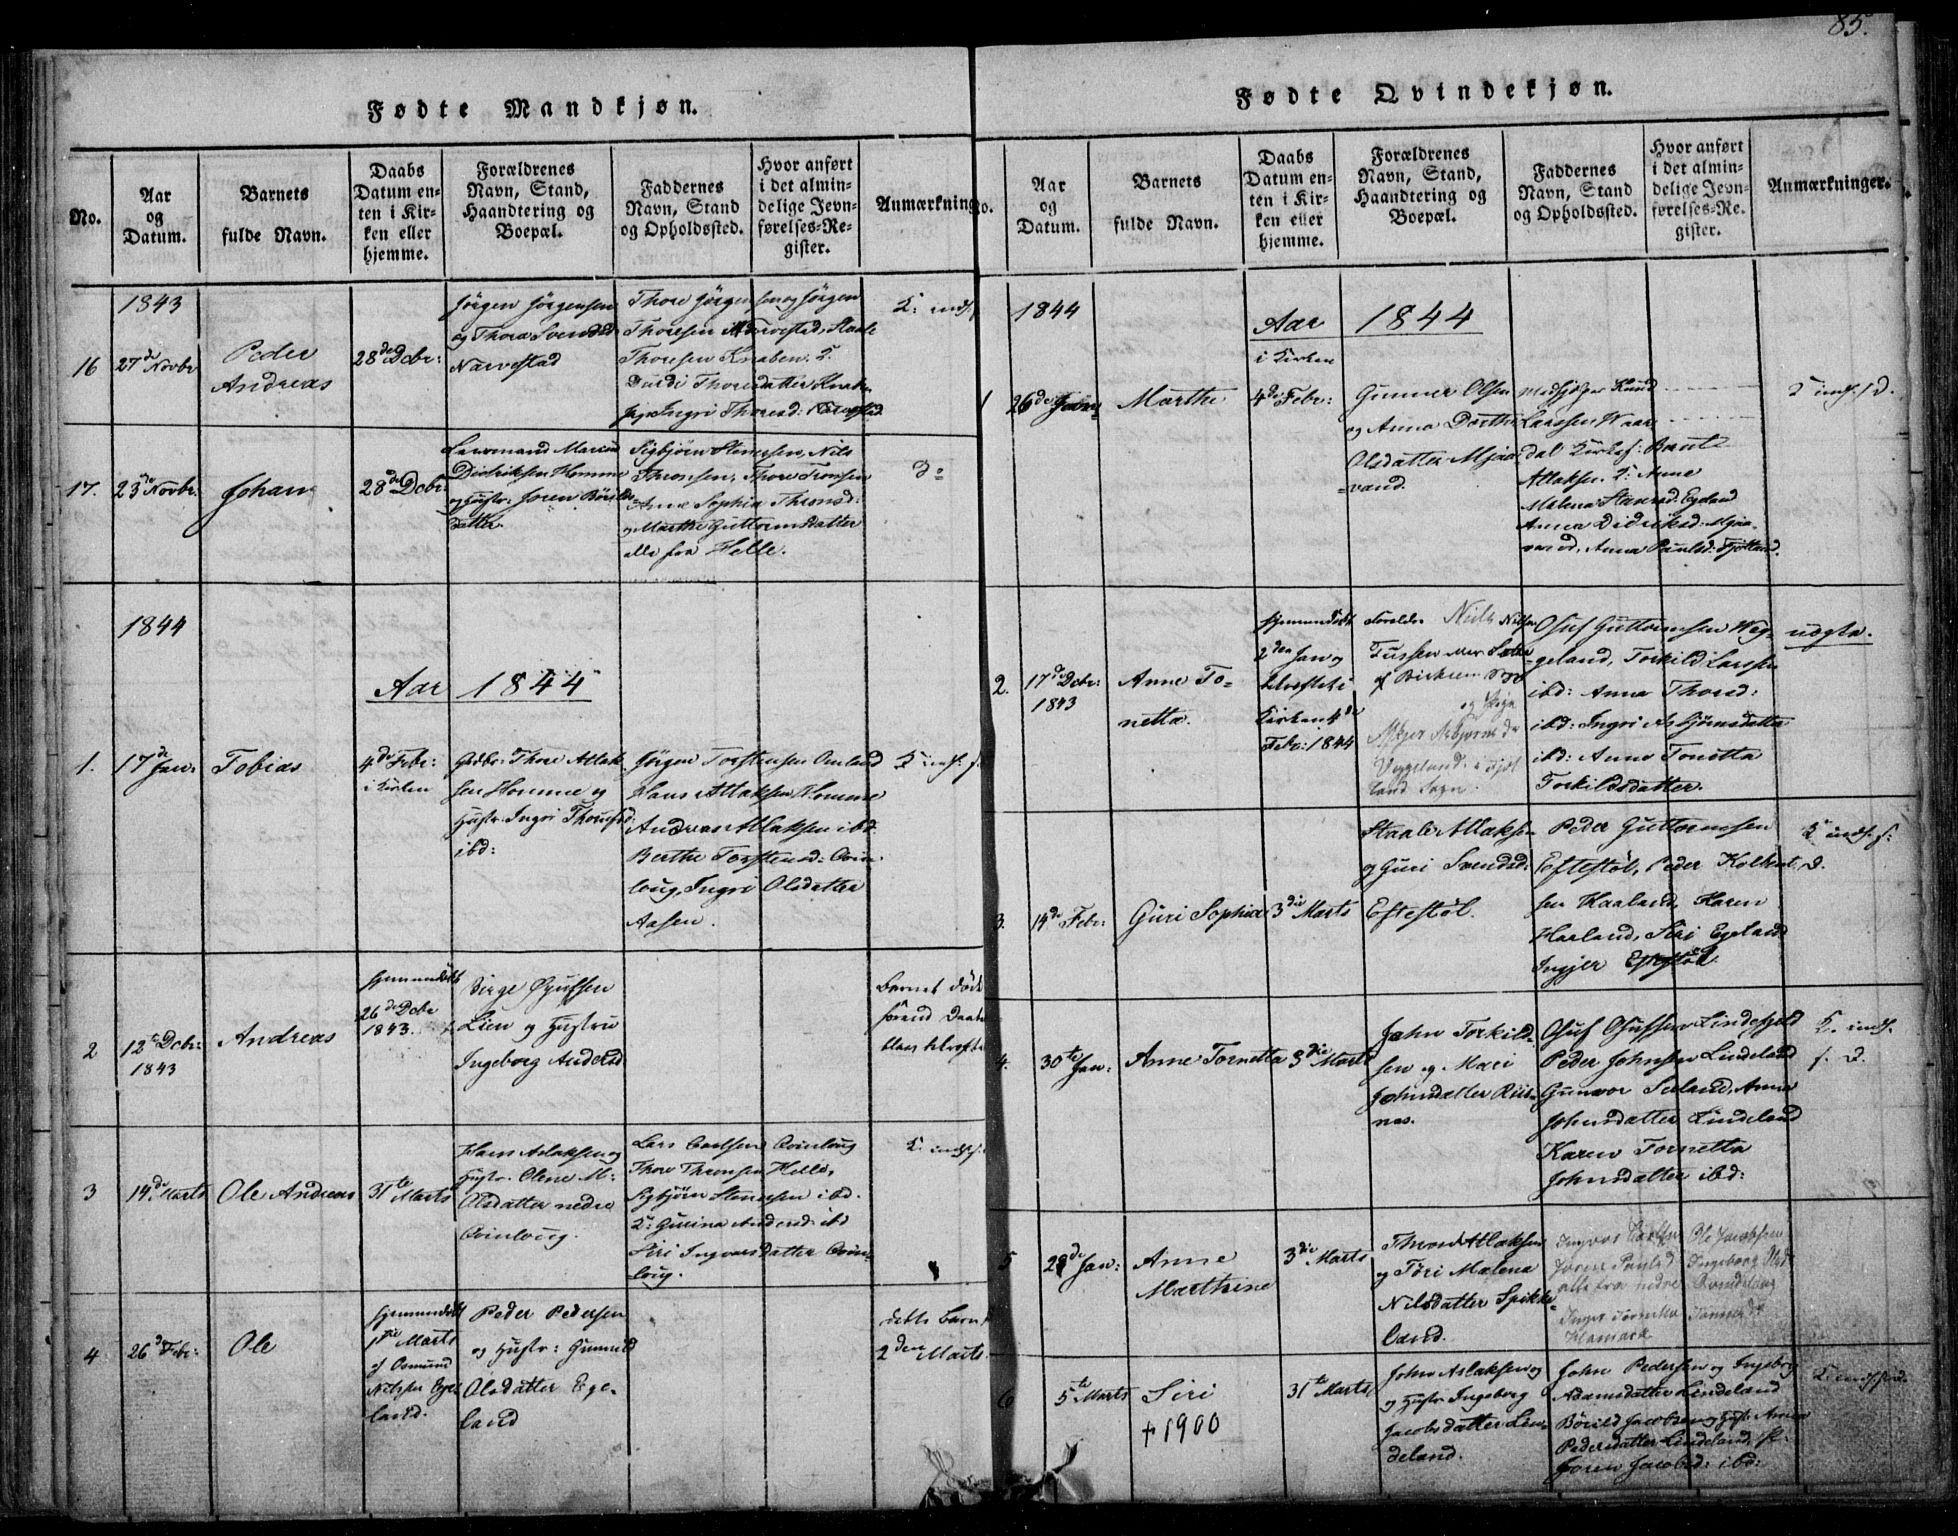 85.
Fødte Mandkjøn.
No.
Aar
og
Datum.
Barnets
fulde Navn.
Daabs
Datum en-
ten i Kir-
ken eller
hjemme.
Forældrenes
Navn, Stand,
Haandtering og
Boepæl.
Faddernes
Navn, Stand
og Opholdssted.
Hvor anført
i det almin-
delige Jevn-
førelses-Re-
gister.
Anmærkning
1843
16
27de Novbr
Peder
Andreas
28de Dcbr:
Jörgen Jörgensen
og Thora Svendsd
Narvestad
Thore Jörgensen og Jörgen
Thoresen Narvestad, Staale
Thoresen Knaben. K.
Thoresdatter
Ingri Thoresd: Narvestad
K: inds.
17.
23de Novbr.
Johan
28de Dcbr:
Lensmand Marcus
Didriksen Homme
og Hustr: Joren Börilds
datter.
Sigbjörn Stenersen, Nils
Thronsen, Thore Tronsen
Anne Sophia Thronsd:
og Marthe Guttormsdatter
alle fra Helle.
1844
Aar 1844
1.
17de Jan:
Tobias
4de Febr:
i Kirken
Gdbr: Thore Atlak-
sen Homme og
Hustr. Ingri Thoresd:
ibd:
Jörgen Torstensen Omland
Hans Atlaksen Homme
Andreas Atlaksen ibd
Berthe Torstensd: Qvin-
loug, Ingri Olsdatter
Aasen.
K inds: f.
2
12te Dcbr:
1843
Andreas
hjemmedöbt
26de Dcbr
1843.
Birge Osufsen
Lien og Hustru
Ingeborg Andersd
Barnet døde
förend Daaben
blev
3
14de Marts
Ole Andreas
31te Marts
Hans Aslaksen og
Hustr. Olene M:
Olsdatter nedre
Qvinloug.
Lars Carlsen Qvinloug
Thore Thronsen Helle,
Sigbjörn Stenersen ibd.
K: Gurina Andersd: ibd
Siri Ingvarsdatter Qvin-
loug.
K. indsf.
4
26de Febr:
Ole
hjemmedöbt
1ste Marts
af Osmund
Nilssen Ege-
land.
Peder Pedersen
og Hustr: Gunnild
Olsdatter Ege-
land
dette Barn
2den Marts.
Fødte Qvindekjøn.
No.
Aar
og
Datum.
Barnets
fulde Navn.
Daabs
Datum en-
ten i Kir-
ken eller
hjemme.
Forældrenes
Navn, Stand,
Haandtering og
Boepæl.
Faddernes
Navn, Stand
og Opholdssted.
Hvor anført
i det almin-
delige Jevn-
førelses-Re-
gister.
Anmærkninger.
1844
Aar 1844
i Kirken
1
26de Jan:
Marthe
4de Febr:
Gunner Olsen
og Anna Dorthe
Olsdatter Mjaa-
vand.
Knud
Larssen Waar
dal Kirkes: Bent
Atlaksen. K: Anne
Malena Staaresd. Egeland
Anna Didriksd: Mjaa-
vand, Anna Paulsd: Fjotland.
K inds. f D.
2.
17de Dcbr:
1843
Anne To-
netta.
hjemmedöbt
2den Jan og
i
Kirken 4de
Febr: 1844
Niels Nilsen
Tussen
og Pige
Asbjørnsdr
Veggeland i Fjot
land Sogn.
Osuf Guttormsen Weg-
geland, Torkild Larssen
ibd: Anna Thorsd:
ibd: Ingri Asbjörnsdatter
ibd: Anne Tonetta
Torkildsdatter.
uægte.
3.
14de Febr:
Guri Sophia
3die Marts
Staale Atlaksen
og Guri Svendsd:
Eftestöl.
Peder Guttormsen
Eftestöl, Peder Kolbent
sen Haaland, Karen
Haaland, Siri Egeland
Ingjer Eftestöl
K inds. f:
D.
4.
30te Jan:
Anne Tornetta
3die Marts
John Torkild-
sen og Mari
Johnsdatter Riis-
nes.
Osuf Osufsen Lindefjeld
Peder Johnsen Lindeland
Gunvor Seland, Anna
Johnsdatter Lindeland
Karen Tornetta
Johnsdatter ibd:
K. inds.
f. D.
5
28de Jan:
Anne
Marthine
3die Marts
Thore Atlaksen
og Töri Malena
Nilsdatter Spikke-
land.
Ole Jacobsen
Joren Paulsd Ingeborg
alle fra nedre Qvindloug
6
5te Marts
Siri
+ 1900
31te Marts
John Aslaksen og
og Hustr Ingeborg
Jacobsdatter Lin-
deland.
John Pedersen og Ingebor
Adamsdatter Lindeland
Börild Jacobsen og Hust: Anna
Pedersdatter Lindeland,
Joren Jacobsd: ibd: